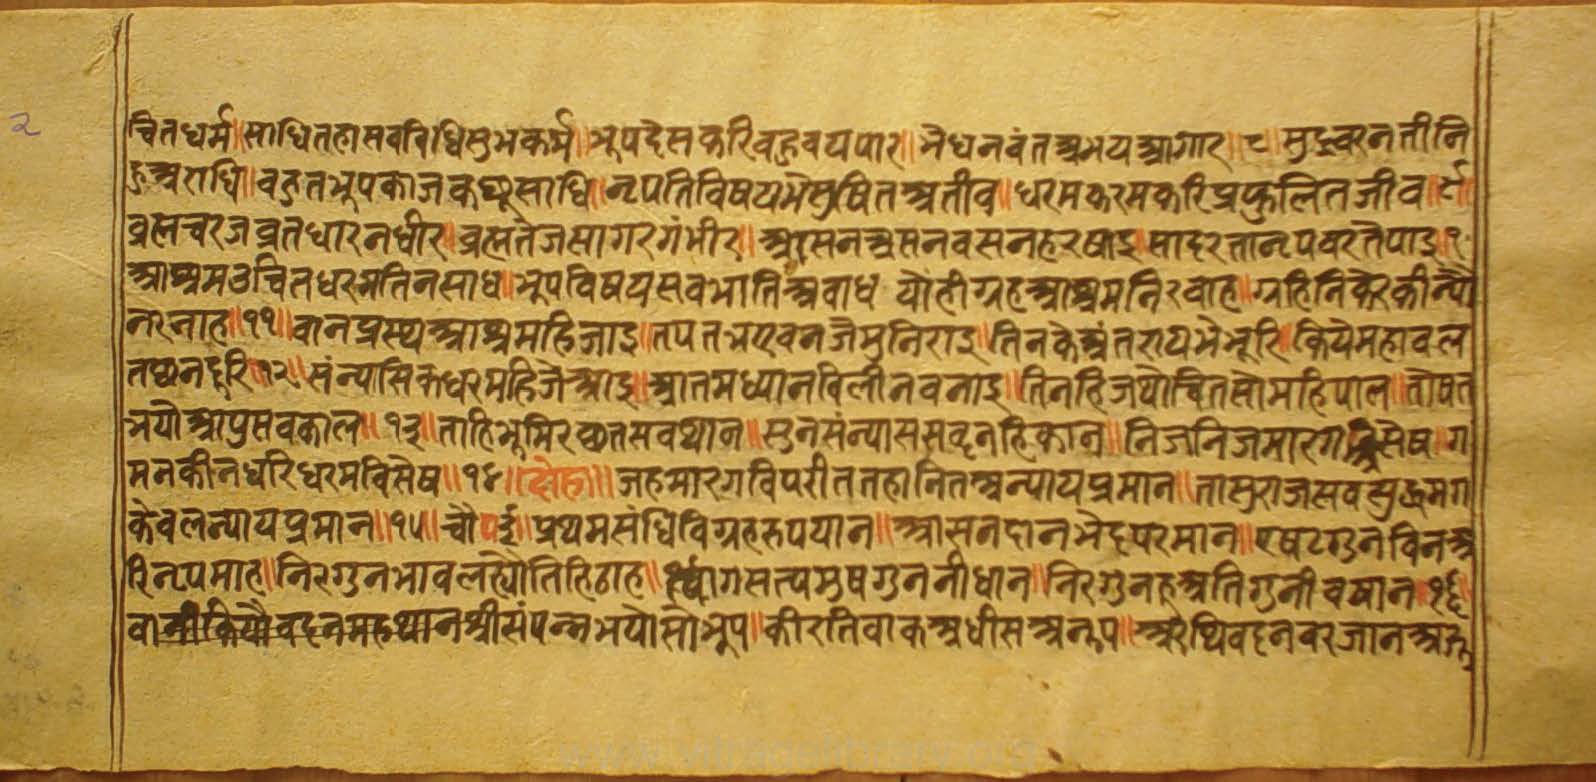 २
चितधर्म॥साधितहासवविधिसुभकर्म॥भूपदेसकरिवहुवयपार॥भैधनवंतअभयआगार॥८॥सुद्रवरनतीनि
हुअराधि॥वहुतभूपकाजकछुसाधि॥नृपतिविषयभैसुषितअतीव॥धरमकरमकरिप्रफुलितजीव॥९॥
व्रह्मचरजव्रतधारनधीर॥व्रह्मतेजसागरगंभीर॥आसनअसनवसनहरषाइ॥सादरतानृपवरतैपाइ॥१०
आश्रमउचितधरमतिनसाध॥भूपविषयसवभातिअवाध यौहीग्रहआश्रमनिरवाह॥ग्रहिनिकरकीन्यौ
नरनाह॥११॥वानप्रस्थआश्रमहिजाइ॥तपतभएवनजैमुनिराइ॥तिनकेअंतरायभैभूरि॥कियेमहावल
तछनदूरि॥१२॥संन्यासिकधरमहिजेआइ॥आतमध्यानविलीनवनाइ॥तिनहिजथोचितसोमहिपाल॥तोषत
भयौआपुसवकाल॥१३॥ताहिभूमिरछतसवथान॥सुनेसंन्याससवृनहिकान॥निजनिजमारग सेष॥ग
मनकीनधरिधरमविसेष॥१४॥दोहा॥जहमारगविपरीततहानितअन्यायप्रमान॥तासुराजसव मग
केवलन्यायप्रमान॥१५॥चौपई॥प्रथमसंधिविग्रहरुपयान॥आसनदानभेदपरमान॥एषटगुनविनअ
रिनृपमाह॥निरगुनभावलह्यौतिहिठाह॥त्यागसत्यमुषगुननीधान॥निरगुनहअतिगुनीवषान॥१६॥
वानीकियौवदनमहथानश्रीसंपन्नभयौसोभूप॥कीरतिवाकअधीसअनूप॥ वदनवरजानअ
www.jainelibrary.org